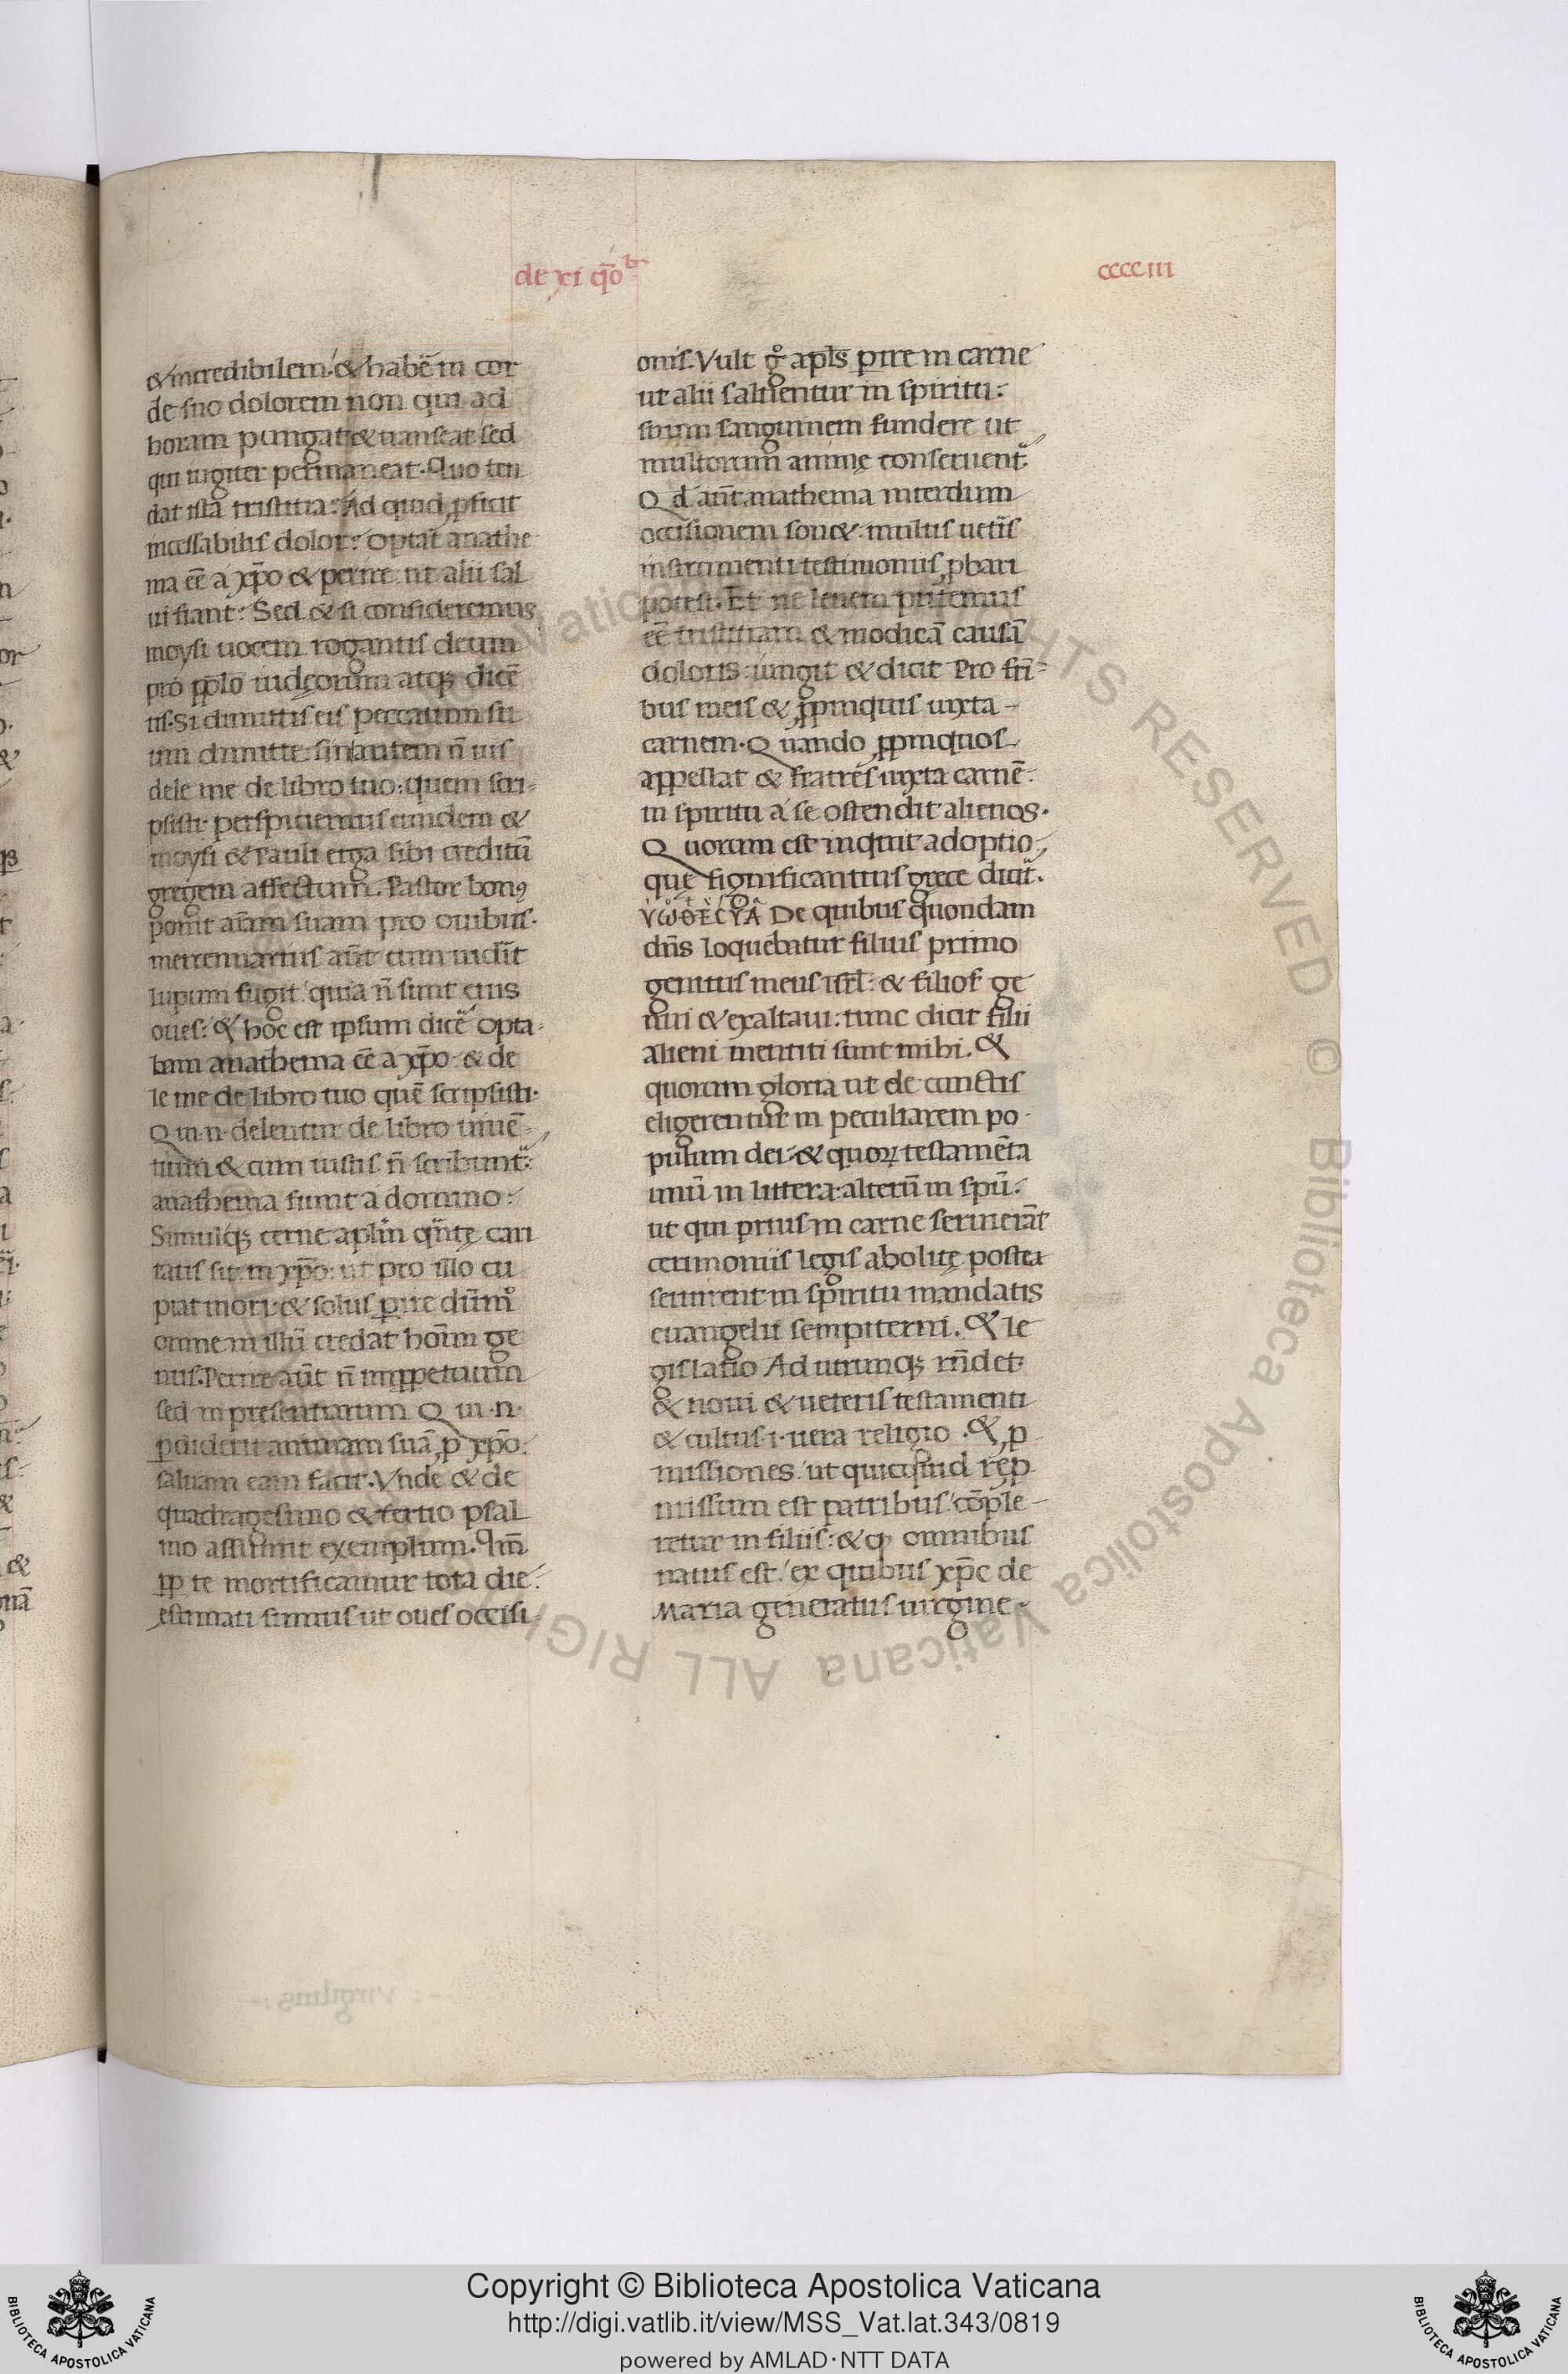 de xi q̄oᵇ
cccciii
& incredibilem. & habe᷒ in cor
de suo dolorem non qui ad
horam pungat & transeat sed
qui iugiter permaneat. Quo ten
dat ista tristitia. Ad quid ꝓficit
incessabilis dolor. Optat anathe
ma ēē a xp̄o & perire ut alii sal
ui fiant. Sed & si consideremus
moysi uocem rogantis deum
pro pplo iudeorum atq; dicē
tis. Si dimittis eis peccatum su
um dimitte. sin autem n̄ uis
dele me de libro tuo. quem scri-
psisti. perspiciemus eundem &
moysi & Pauli erga sibi creditū
gregem affectum. Pastor bonꝰ
ponit aīam suam pro ouibus.
mercennarius aūt cum uider̄it
lupum fugit. quia n̄ sunt eius
oues. & hoc est ipsum dicē opta
bam anathema ēē a xp̄o & de
le me de libro tuo quē scripsisti.
Qui .n. delentur de libro uiuē
tium & cum iustis n̄ scribunt᷒
anathema fiunt a domino.
Simulq; cerne aplm̄ quāntę cari
tatis sit in xp̄o. ut pro illo cu
piat mori. & solus ꝑire dūmͦ
omne in illū credat hoīm ge
nus. Perire aūt n̄ imppetuum
sed inpresentiarum Qui .n.
ꝑdiderit animam suā ꝓ xp̄o
saluam eam facit. Vnde & de
quadragesimo & tertio psal
mo assumit exemplum. Qm̄
ꝓp te mortificamur tota die.
ęstimati sumus ut oues occisi
onis. Vult gͦ apl̄s ꝑire in carne
ut alii saluentur in spiritu.
suum sanguinem fundere ut
multorum animę conseruent᷒.
Qd aūt anathema interdum
occisionem sonet. multis uet̄is
instrumenti testimoniis ꝓbari
potest. Et ne leuem putemus
ēē tristitiam & modicā causā
doloris. iungit & dicit Pro fr̄i-
bus meis & ꝓpinquis iuxta
carnem. Quando ꝓpinquos
appellat & fratres iuxta carnē.
in spiritu a se ostendit alienos.
Quorum est inquit adoptio
que significantius grece dicit᷒.
ΥѠΘΕCΥΑ De quibus quondam
dn̄s loquebatur filius primo
genitus meus isrl̄. & filios ge
nui & exaltaui. tunc dicit filii
alieni mentiti sunt mihi. &
quorum gloria ut de cunctis
eligerentur in peculiarem po
pulum dei. & quoꝝ testamēta
unū in littera. alterū in spū.
ut qui prius in carne seruierāt
cerimoniis legis abolitę. postea
seruirent in spiritu mandatis
euangelii sempiterni. & le
gislatio Ad utrumq; rn̄det
& noui & ueteris testamenti
& cultus .i. uera religio. & ꝓ
missiones. ut quicquid repͦ
missum est patribus. cōple
retur in filiis. & qꝫ omnibus
natus est. ex quibus xp̄c de
Maria generatus uirgine.
Virgilius
Copyright © Biblioteca Apostolica Vaticana
http://digi.vatlib.it/view/MSS_Vat.lat.343/0819
powered by AMLAD·NTT DATA